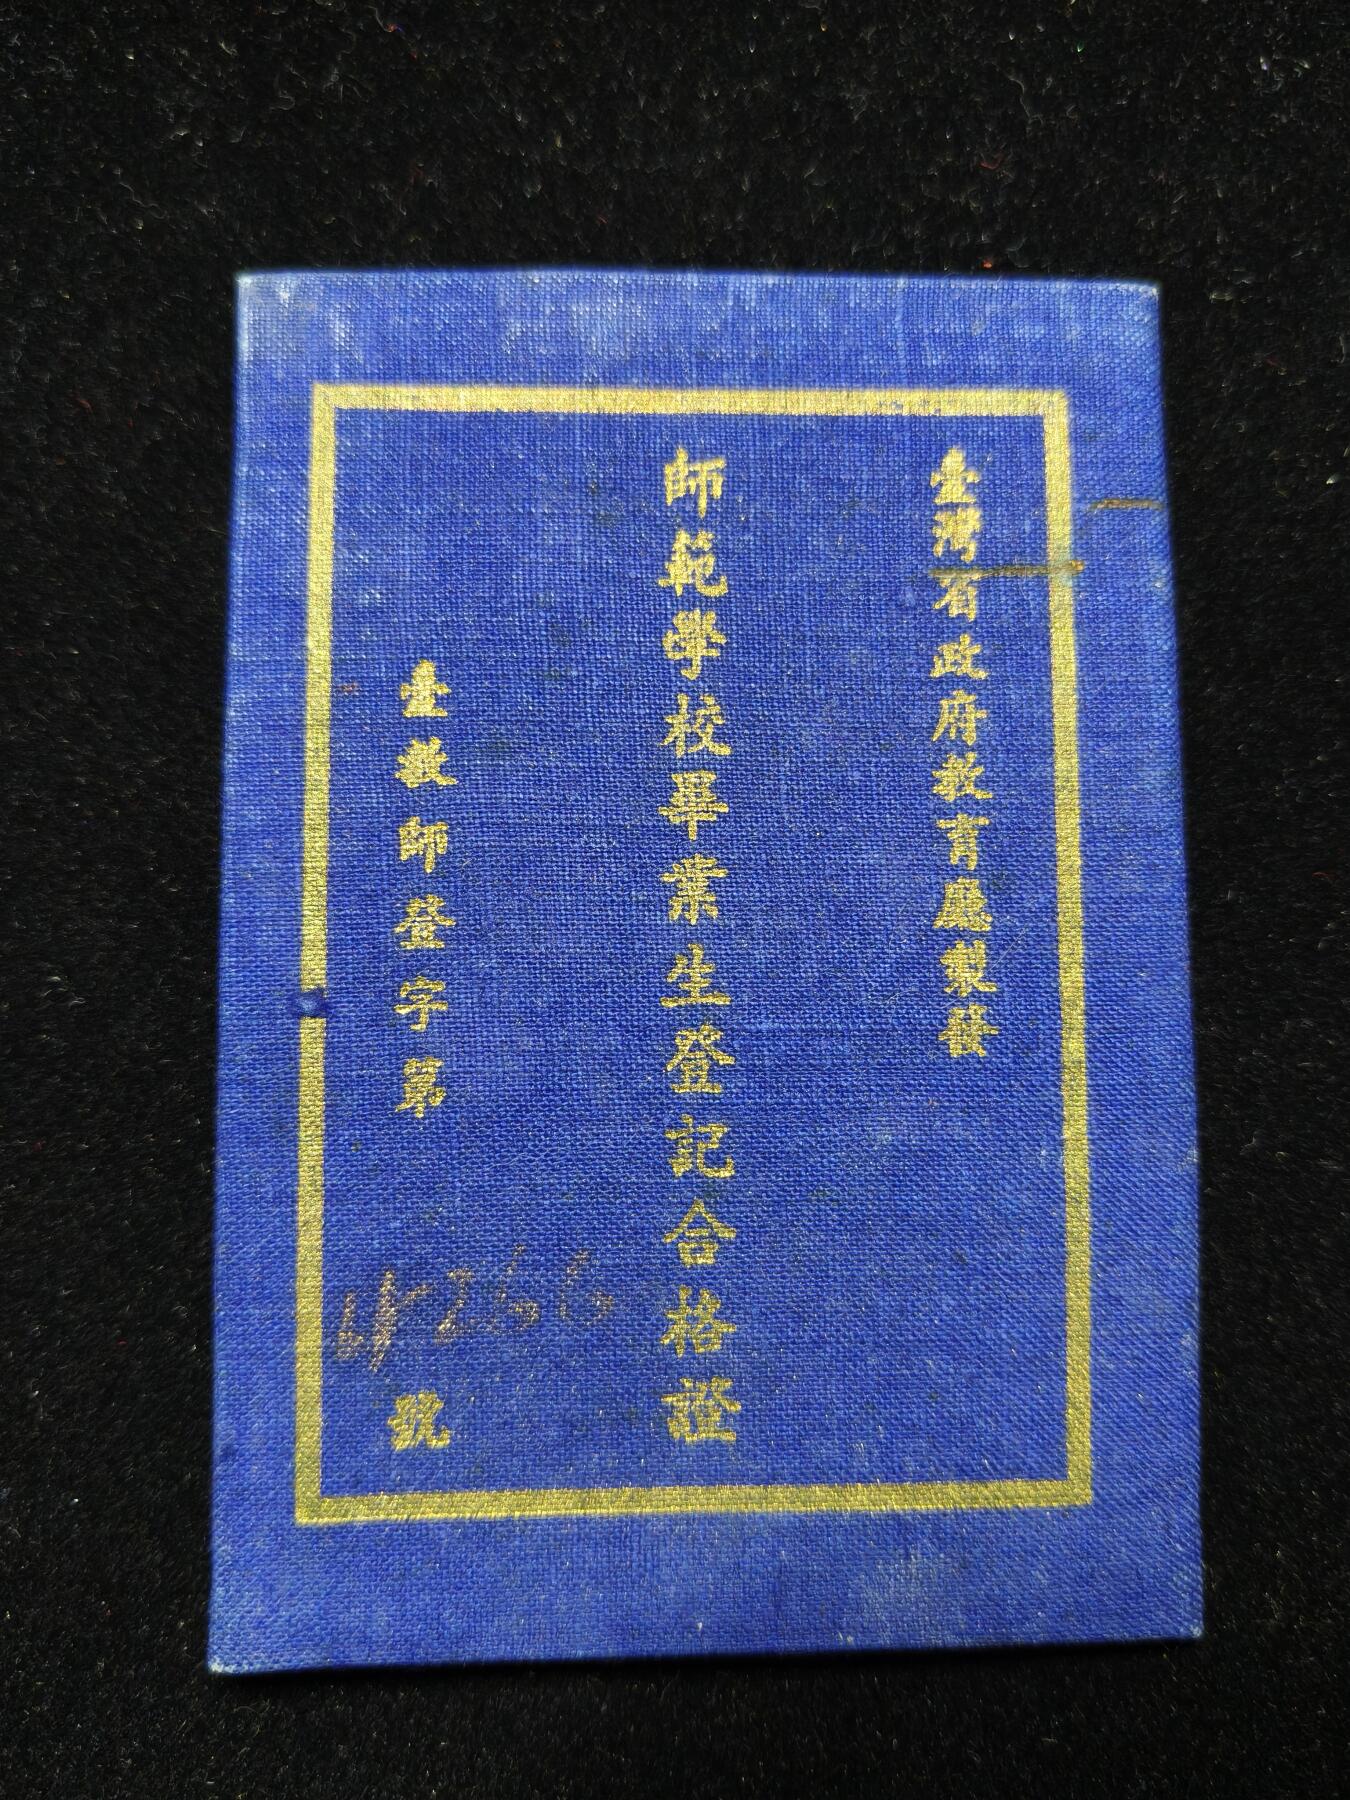 臺灣省政府教育廳製發
師範學校畢業生登記合格證
臺教師登字第4266號